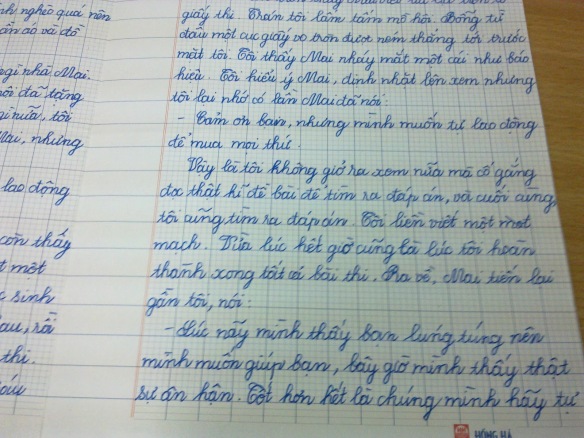 nh nghèo quá nên
giấy thi. Trán tôi lấm tấm mồ hôi. Bỗng từ
đâu một cục giấy vo tròn được ném thẳng tới trước
mặt tôi. Tôi thấy Mai nháy mắt một cái như báo
hiệu. Tôi hiểu ý Mai, định nhặt lên xem nhưng
tôi lại nhớ có lần Mai đã nói:
- Cảm ơn bạn, nhưng mình muốn tự lao động
để mua mọi thứ.
Vậy là tôi không giở ra xem nữa mà cố gắng
đọc thật kĩ đề bài để tìm ra đáp án, và cuối cùng
tôi cũng tìm ra đáp án. Tôi liền viết một mạt
mạch. Vừa lúc hết giờ cũng là lúc tôi hoàn
thành xong tất cả bài thi. Ra về, Mai tiến lại
gần tôi, nói:
- Lúc nãy mình thấy bạn lúng túng nên
mình muốn giúp bạn, bây giờ mình thấy thật
sự ân hận. Tốt hơn hết là chúng mình hãy tự
gì nhà Mai.
ôi đã tặng
gì nữa, tôi
Mai, nhưng
lao động
còn thấy
t một
c sinh
au, rồi
thi.
HỒNG HÀ